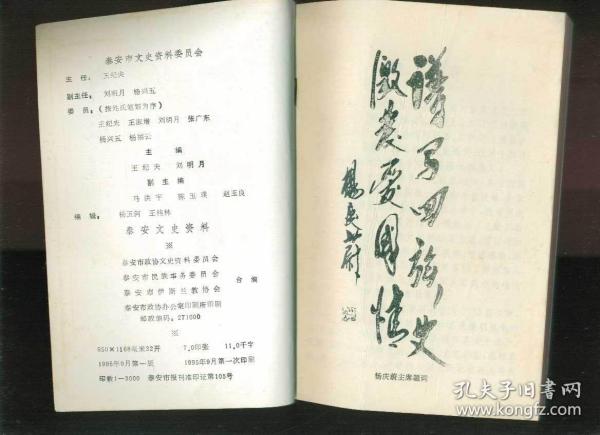 泰安市文史资料委员会
主任：王纪夫
副主任：刘明月 杨兴五
委员：（按姓氏笔划为序）
王纪夫 王淑增 刘明月 张广东
杨兴五 杨丽云
主编
王纪夫 刘明月
副主编
马洪宇 陈玉璞 赵玉良
编辑：杨五河 王桂林
泰安文史资料
※
泰安市政协文史资料委员会
泰安市民族事务委员会
泰安市伊斯兰教协会
合编
泰安市政协办公室印刷所印刷
邮政编码：271000
※
850×1168毫米32开 7.0印张 11.0千字
1995年9月第一版 1995年9月第一次印刷
印数1—3000 泰安市报刊准印证第105号
谱写回族史
激发爱国情
杨庆蔚主席题词
孔夫子旧书网
www.kongfz.com